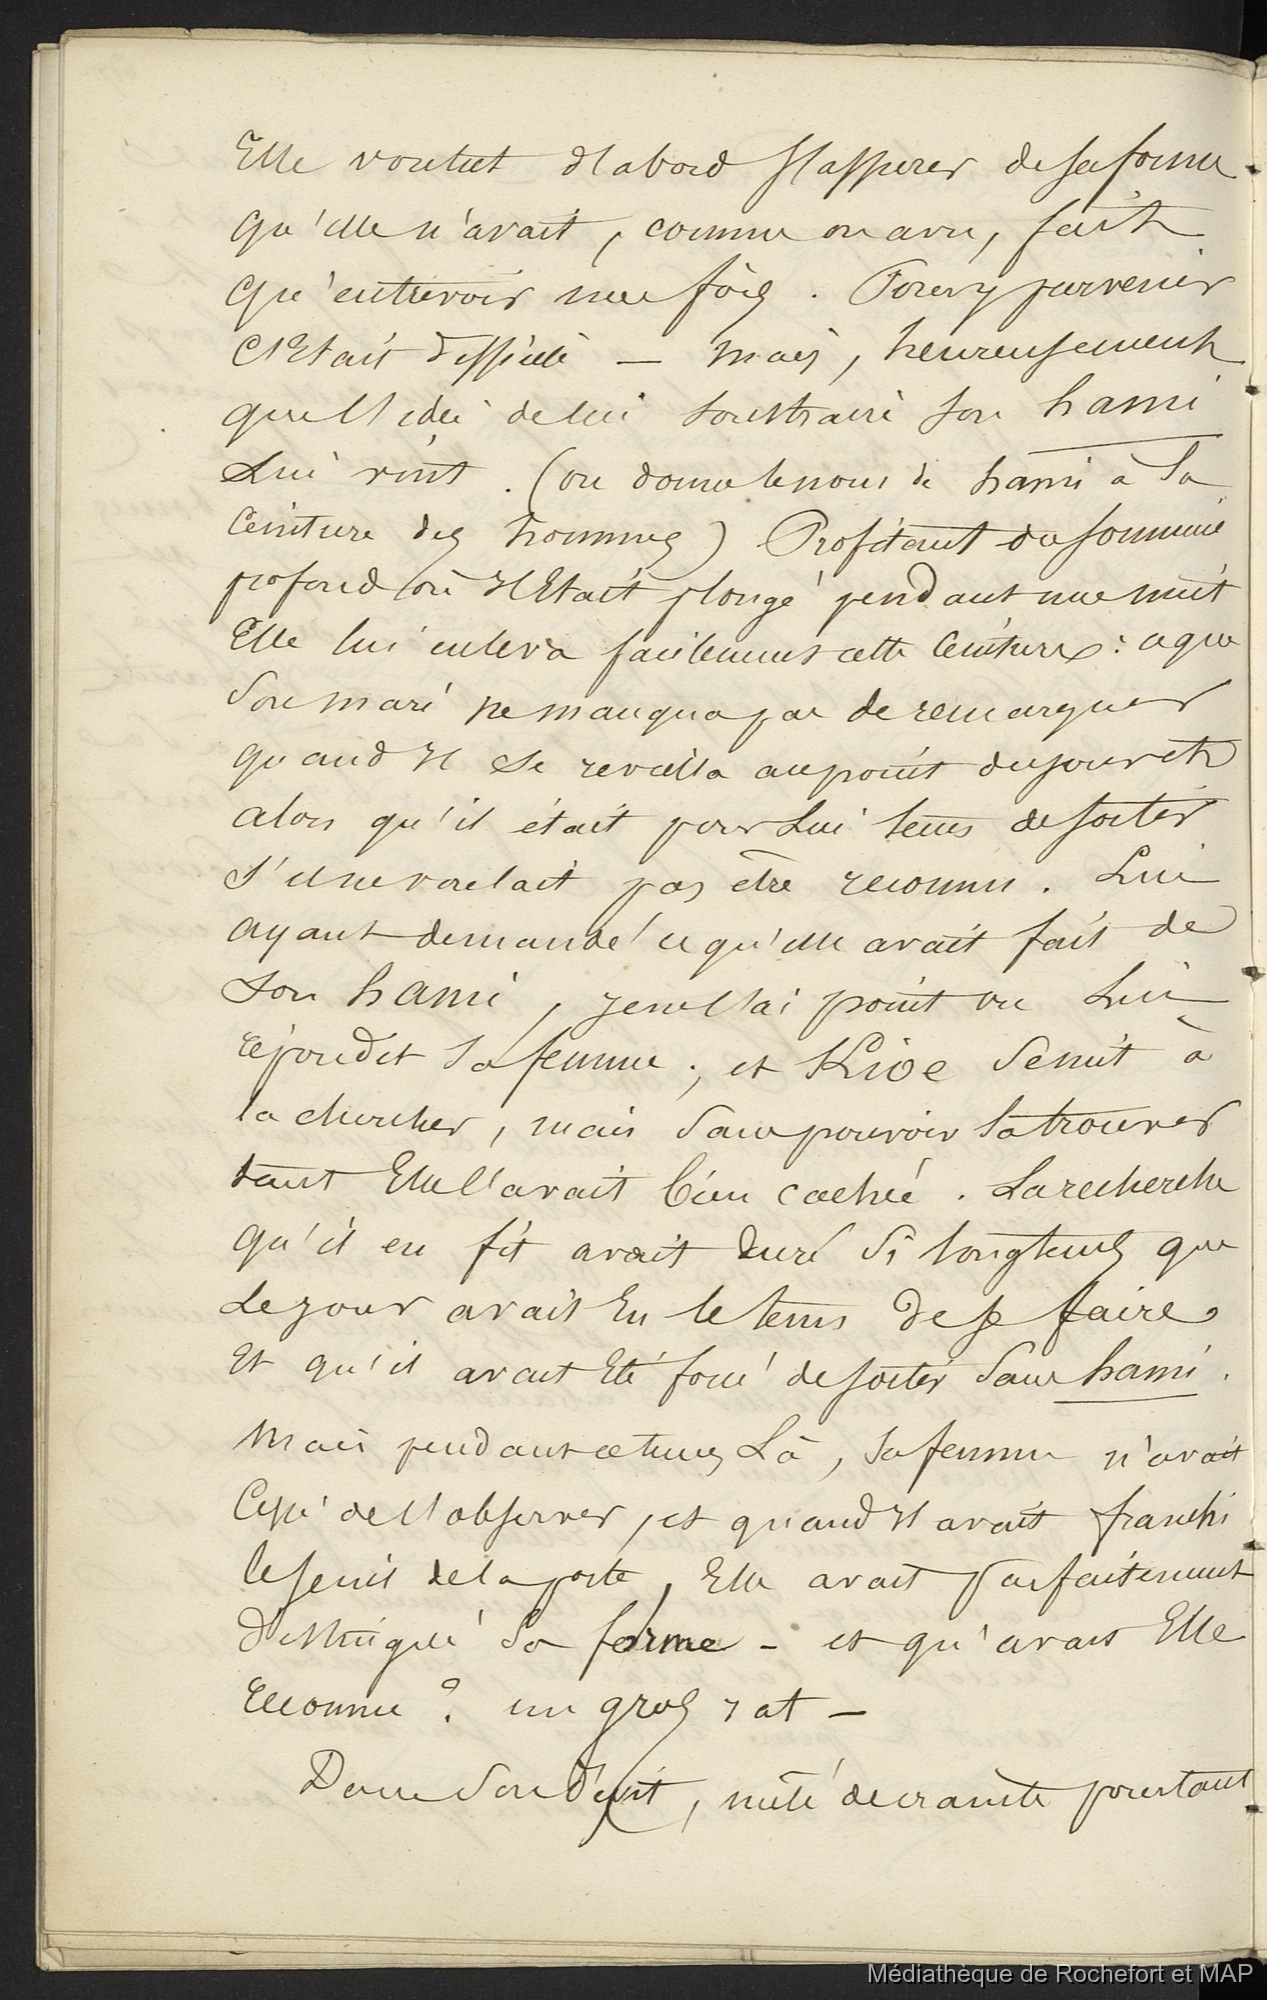 Elle voulut d'abord s'assurer de sa forme
qu'elle n'avait, comme on a vu, fait
qu'entrevoir une fois. Pour y parvenir
c'Etait difficile — mais, heureusement
que l'idée de lui soustraire son hami
Lui vint. (on donne le nom de hami à la
Ceinture des hommes) Profitant du sommeil
profond où Il Etait plongé pendant une nuit
Elle lui enleva facilement cette Ceinture: ce que
Son mari ne manqua pas de remarquer
quand Il Se reveilla au point du jour et
alors qu'il était pour Lui tems de sortir
S'il ne voulait pas être reconnu. Lui
ayant demandé ce qu'elle avait fait de
Son hami, je ne l'ai point vu Lui
répondit Sa femme; et Kioe Se mit à
la chercher, mais Sans pouvoir la trouver
tant Elle l'avait bien cachée. La recherche
qu'il en fit avait duré Si longtems que
Le jour avait Eu le tems de se faire
Et qu'il avait Eté forcé de sortir Sans hami.
Mais pendant ce tems Là, Sa femme n'avait
Cessé de l'observer, et quand Il avait franchi
le seuil de la porte, Elle avait parfaitement
distingué Sa forme - et qu'avait Elle
reconnu? un gros rat —
Dans Son Dépit, mêlé de crainte pourtant
Médiathèque de Rochefort et MAP